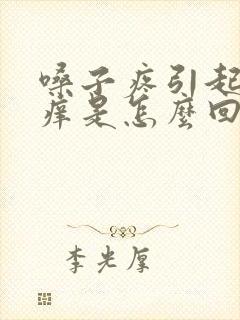 嗓子疼引起
痒是怎麼回
李光厚